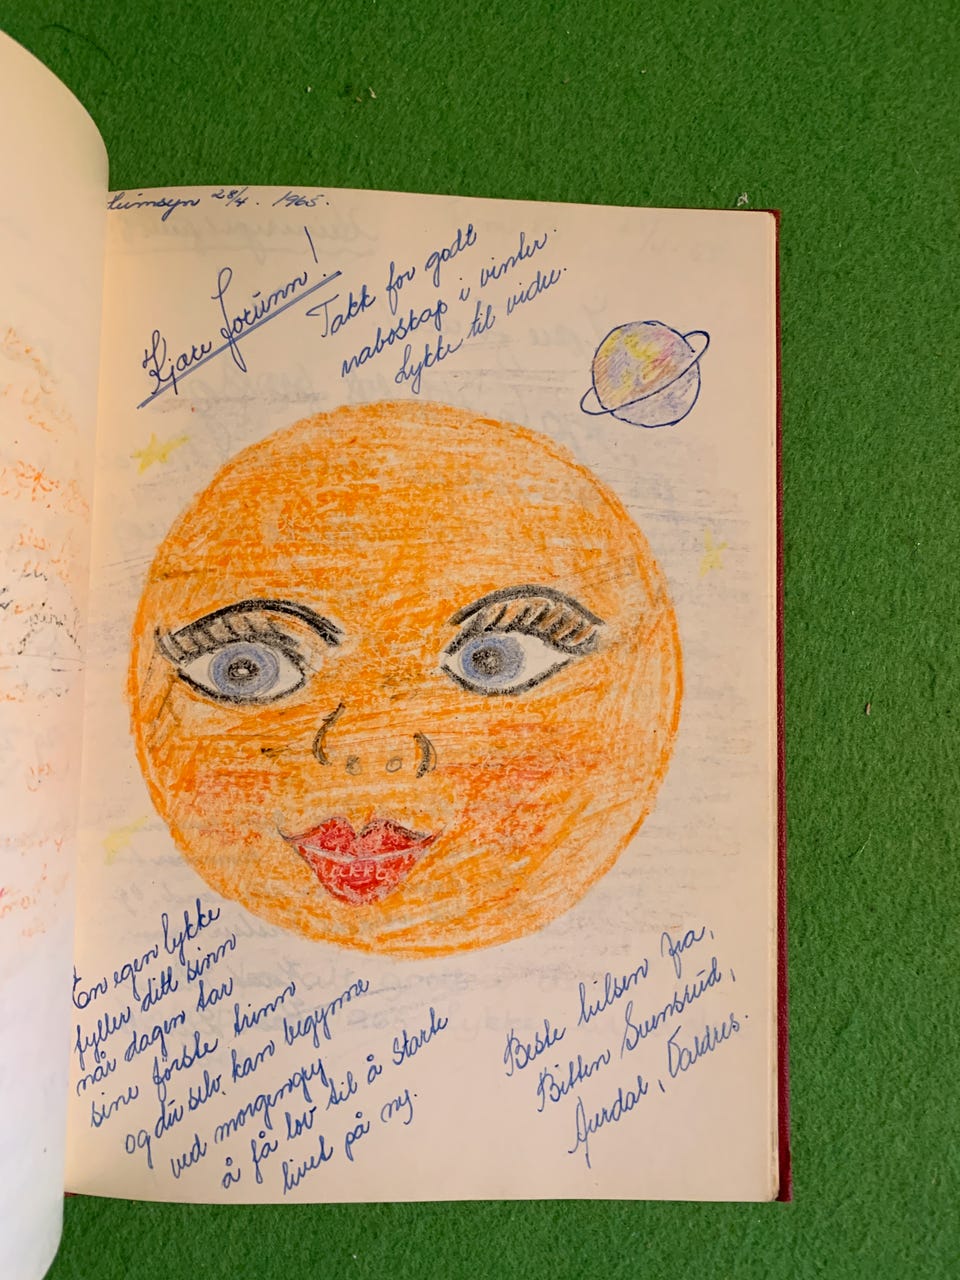 28/4. 1965.
Kjære Jorunn!
Takk for godt
naboskap i vinter.
Lykke til vidre.
En egen lykke
fyller ditt sinn
når dagen tar
sine første trinn
og du selv, kan begynne
ved morgengry
å få lov til å starte
livet på ny.
Beste hilsen fra,
Bitten Svensrud,
Aurdal, Valdres.